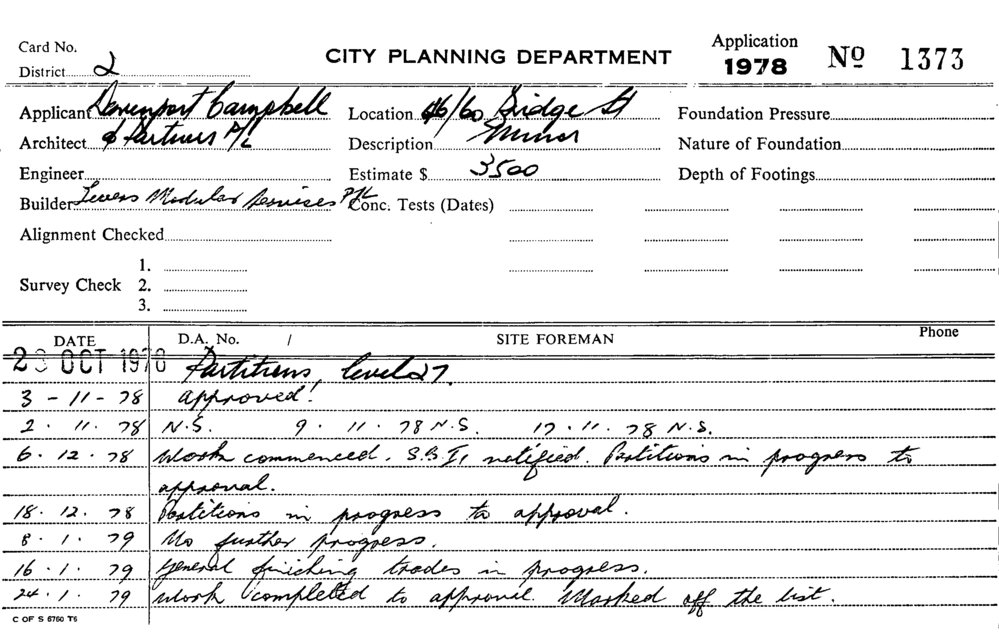 Card No.
District 2
CITY PLANNING DEPARTMENT
Application
1978
Nº 1373
Applicant Davenport Campbell
Location 46/60 Bridge St
Foundation Pressure
Architect & Partners P/L
Description Minor
Nature of Foundation
Engineer
Estimate $ 3500
Depth of Footings
Builder Levers Modular Services P/L
Conc. Tests (Dates)
Alignment Checked
1.
Survey Check 2.
3.
DATE
D.A. No. /
SITE FOREMAN
Phone
23 OCT 1978 Partitions, level 27.
3 - 11 - 78 approved!
2 . 11 . 78 N.S. 9 . 11 . 78 N.S. 17 . 11 . 78 N.S.
6 . 12 . 78 Work commenced. S.B.I. notified. Partitions in progress to
approval.
18 . 12 . 78 Partitions in progress to approval.
8 . 1 . 79 No further progress.
16 . 1 . 79 General finishing trades in progress.
24 . 1 . 79 Work completed to approval. Marked off the list.
C OF S 6760 T6